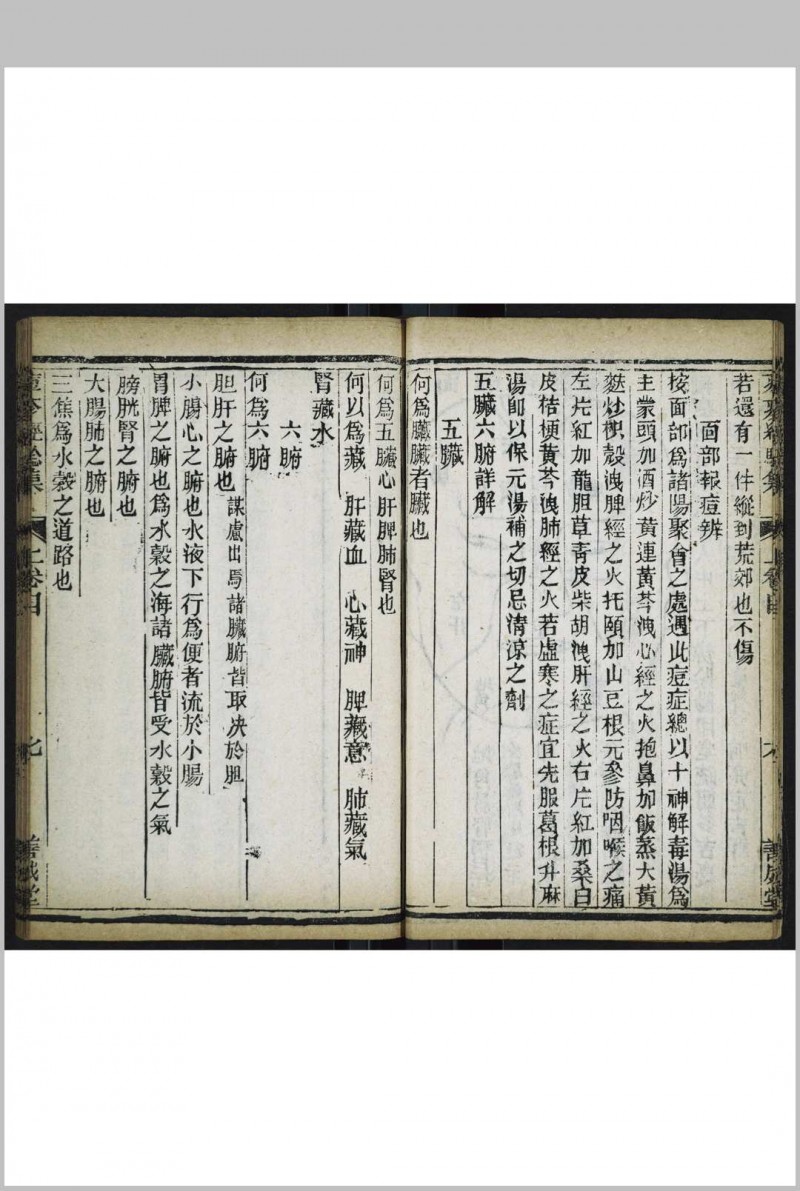 若還有一件縱到荒郊也不傷
面部報痘辨
按面部為諸陽聚會之處遇此痘症總以十神解毒湯為
主蒙頭加酒炒黃連黃芩洩心經之火抱鼻加飯蒸大黃
麩炒枳殼洩脾經之火托頤加山豆根元參防咽喉之痛
左片紅加龍胆草青皮柴胡洩肝經之火右片紅加桑白
皮桔梗黃芩洩肺經之火若虛寒之症宜先服葛根升麻
湯卽以保元湯補之切忌清涼之劑
五臟六腑詳解
五臟
何爲臟臟者臟也
何爲五臟心肝脾肺腎也
何以爲藏 肝藏血 心藏神 脾藏意 肺藏氣
腎藏水
六腑
何爲六腑
胆肝之腑也謀慮出焉諸臟腑皆取决於胆
小腸心之腑也水液下行爲便者流於小腸
胃脾之腑也爲水穀之海諸臟腑皆受水穀之氣
膀胱腎之腑也
大腸肺之腑也
三焦爲水穀之道路也
上卷目
善成堂